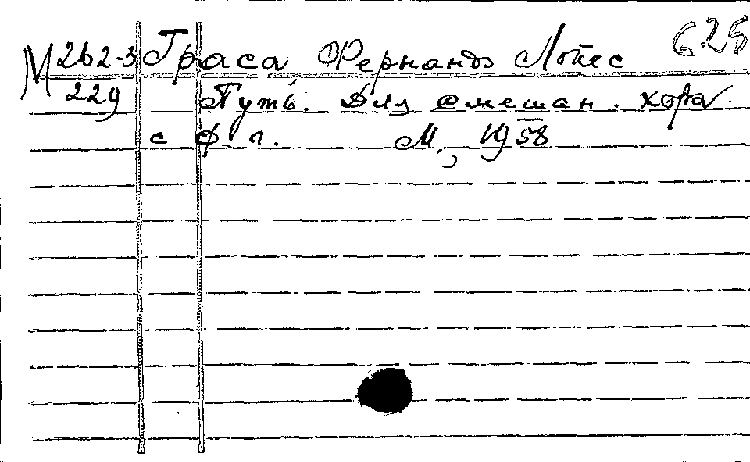 М 262-3 Граса, Фернандо Лопес 625
229 Путь. Для смешан. хора
с ф-п. М., 1958